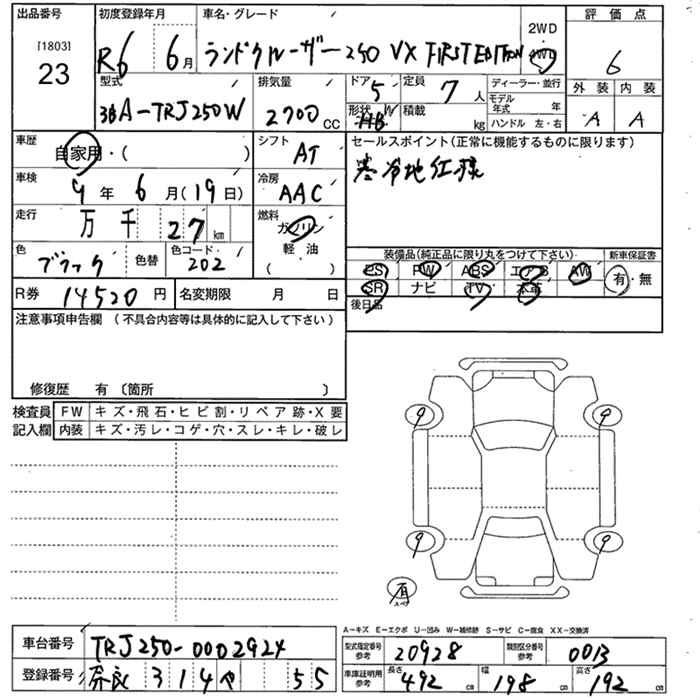 出品番号 [1803] 23
初度登録年月 R6 6月
車名・グレード ランドクルーザー250 VX FIRST EDITION
2WD 4WD
評価点 6
外装 A 内装 A
型式 3BA-TRJ250W
排気量 2700 CC
ドア 5 形状 HB W
定員 7 人
積載 kg
ディーラー・並行
モデル年式 年
ハンドル 左・右
車歴 自家用・( )
シフト AT
セールスポイント(正常に機能するものに限ります)
寒冷地仕様
車検 9年 6月(19日)
冷房 AAC
走行 万 千 27 km
燃料 ガソリン 軽油 ( )
色 ブラック 色替 色コード 202
装備品(純正品に限り丸をつけて下さい) 新車保証書
PS PW ABS エアB AW 有・無
SR ナビ TV 本革
R券 14520 円 名変期限 月 日
後日品
注意事項申告欄 (不具合内容等は具体的に記入して下さい)
修復歴 有 〔箇所 〕
検査員記入欄
FW キズ・飛石・ヒビ割・リペア跡・X要
内装 キズ・汚レ・コゲ・穴・スレ・キレ・破レ
9 9
9 9
有 スペア
A－キズ E－エクボ U－凹み W－補修跡 S－サビ C－腐食 XX－交換済
車台番号 TRJ250-0002924
型式指定番号 参考 20928 類別区分番号 参考 0013
登録番号 奈良 314 や 55
車庫証明用 参考 長さ 492 幅 198 高さ 192